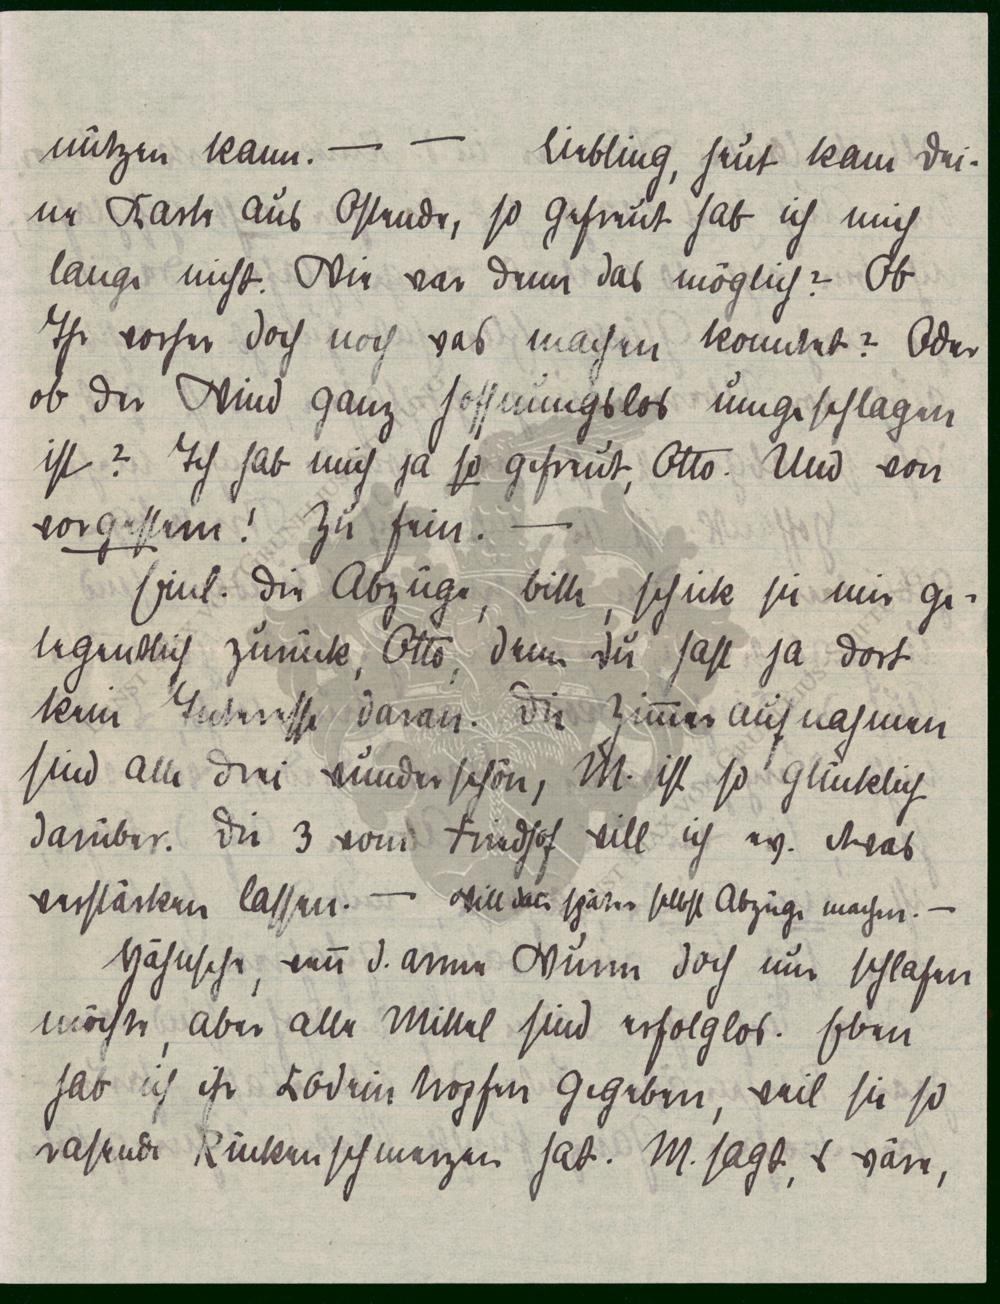 nützen kann. — — Liebling, heut kam dei-
ne Karte aus Ostende, so gefreut hab ich mich
lange nicht. Wie war denn das möglich? Ob
Ihr vorher doch noch was machen konntet? Oder
ob der Wind ganz hoffnungslos umgeschlagen
ist? Ich hab mich ja so gefreut, Otto. Und von
vorgestern! Zu fein. —
Einl. die Abzüge, bitte, schick sie mir ge-
legentlich zurück, Otto, denn du hast ja dort
kein Interesse daran. Die Zimmeraufnahmen
sind alle drei wunderschön, M. ist so glücklich
darüber. Die 3 vom Friedhof will ich ev. etwas
verstärken lassen. — will dann später selbst Abzüge machen. —
Hähnsche, wenn d. arme Wurm doch nur schlafen
möchte, aber alle Mittel sind erfolglos. Eben
hab ich ihr Kodeintropfen gegeben, weil sie so
rasende Rückenschmerzen hat. M. sagt, es wäre,